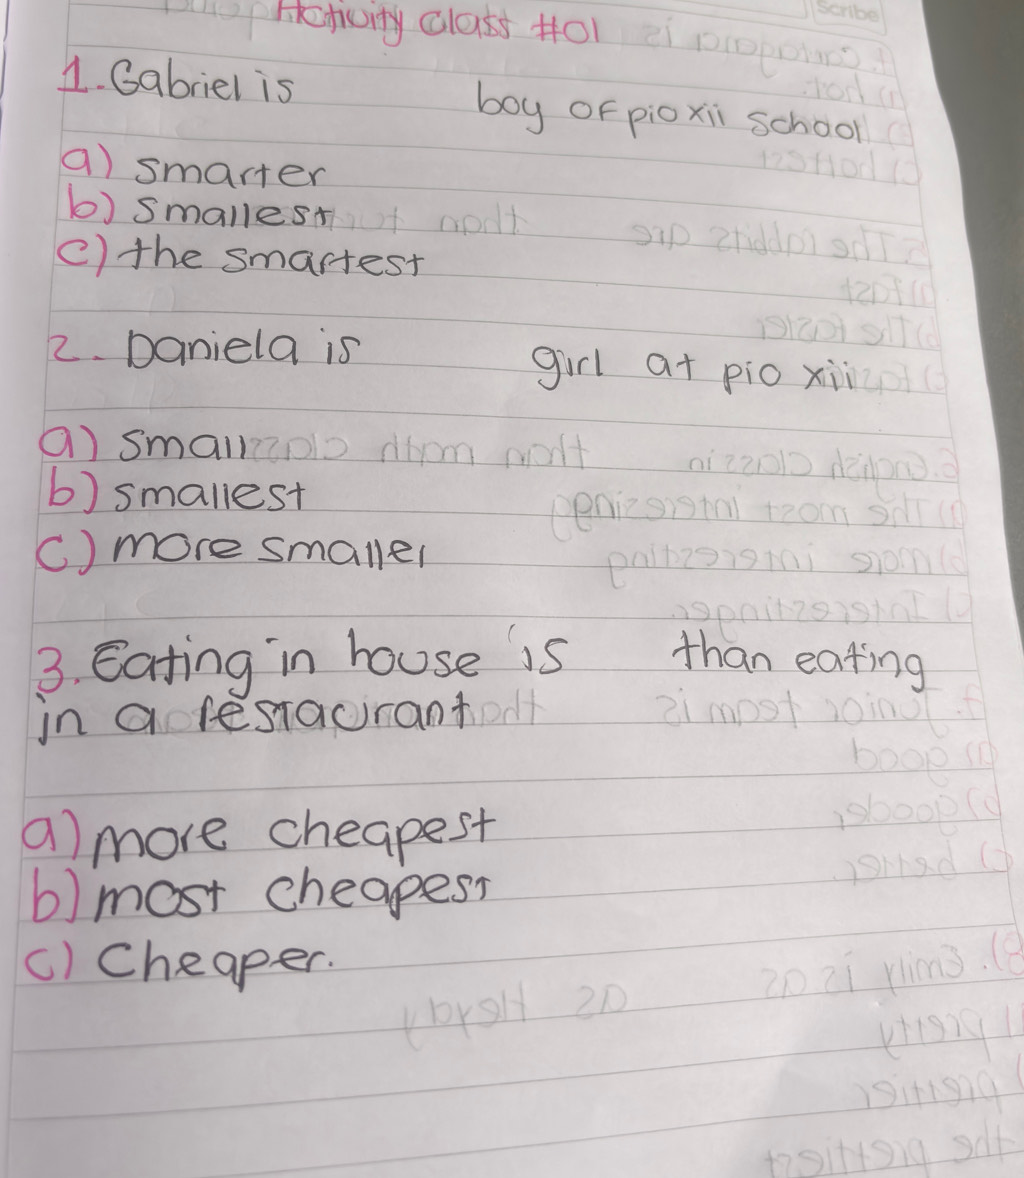 Activity Class #01
1. Gabriel is boy of pio xii school
a) smarter
b) smallest
c) the smartest
2. Daniela is girl at pio xii
a) small
b) smallest
c) more smaller
3. Eating in house is than eating
in a restaurant
a) more cheapest
b) most cheapest
c) Cheaper.
Scribe